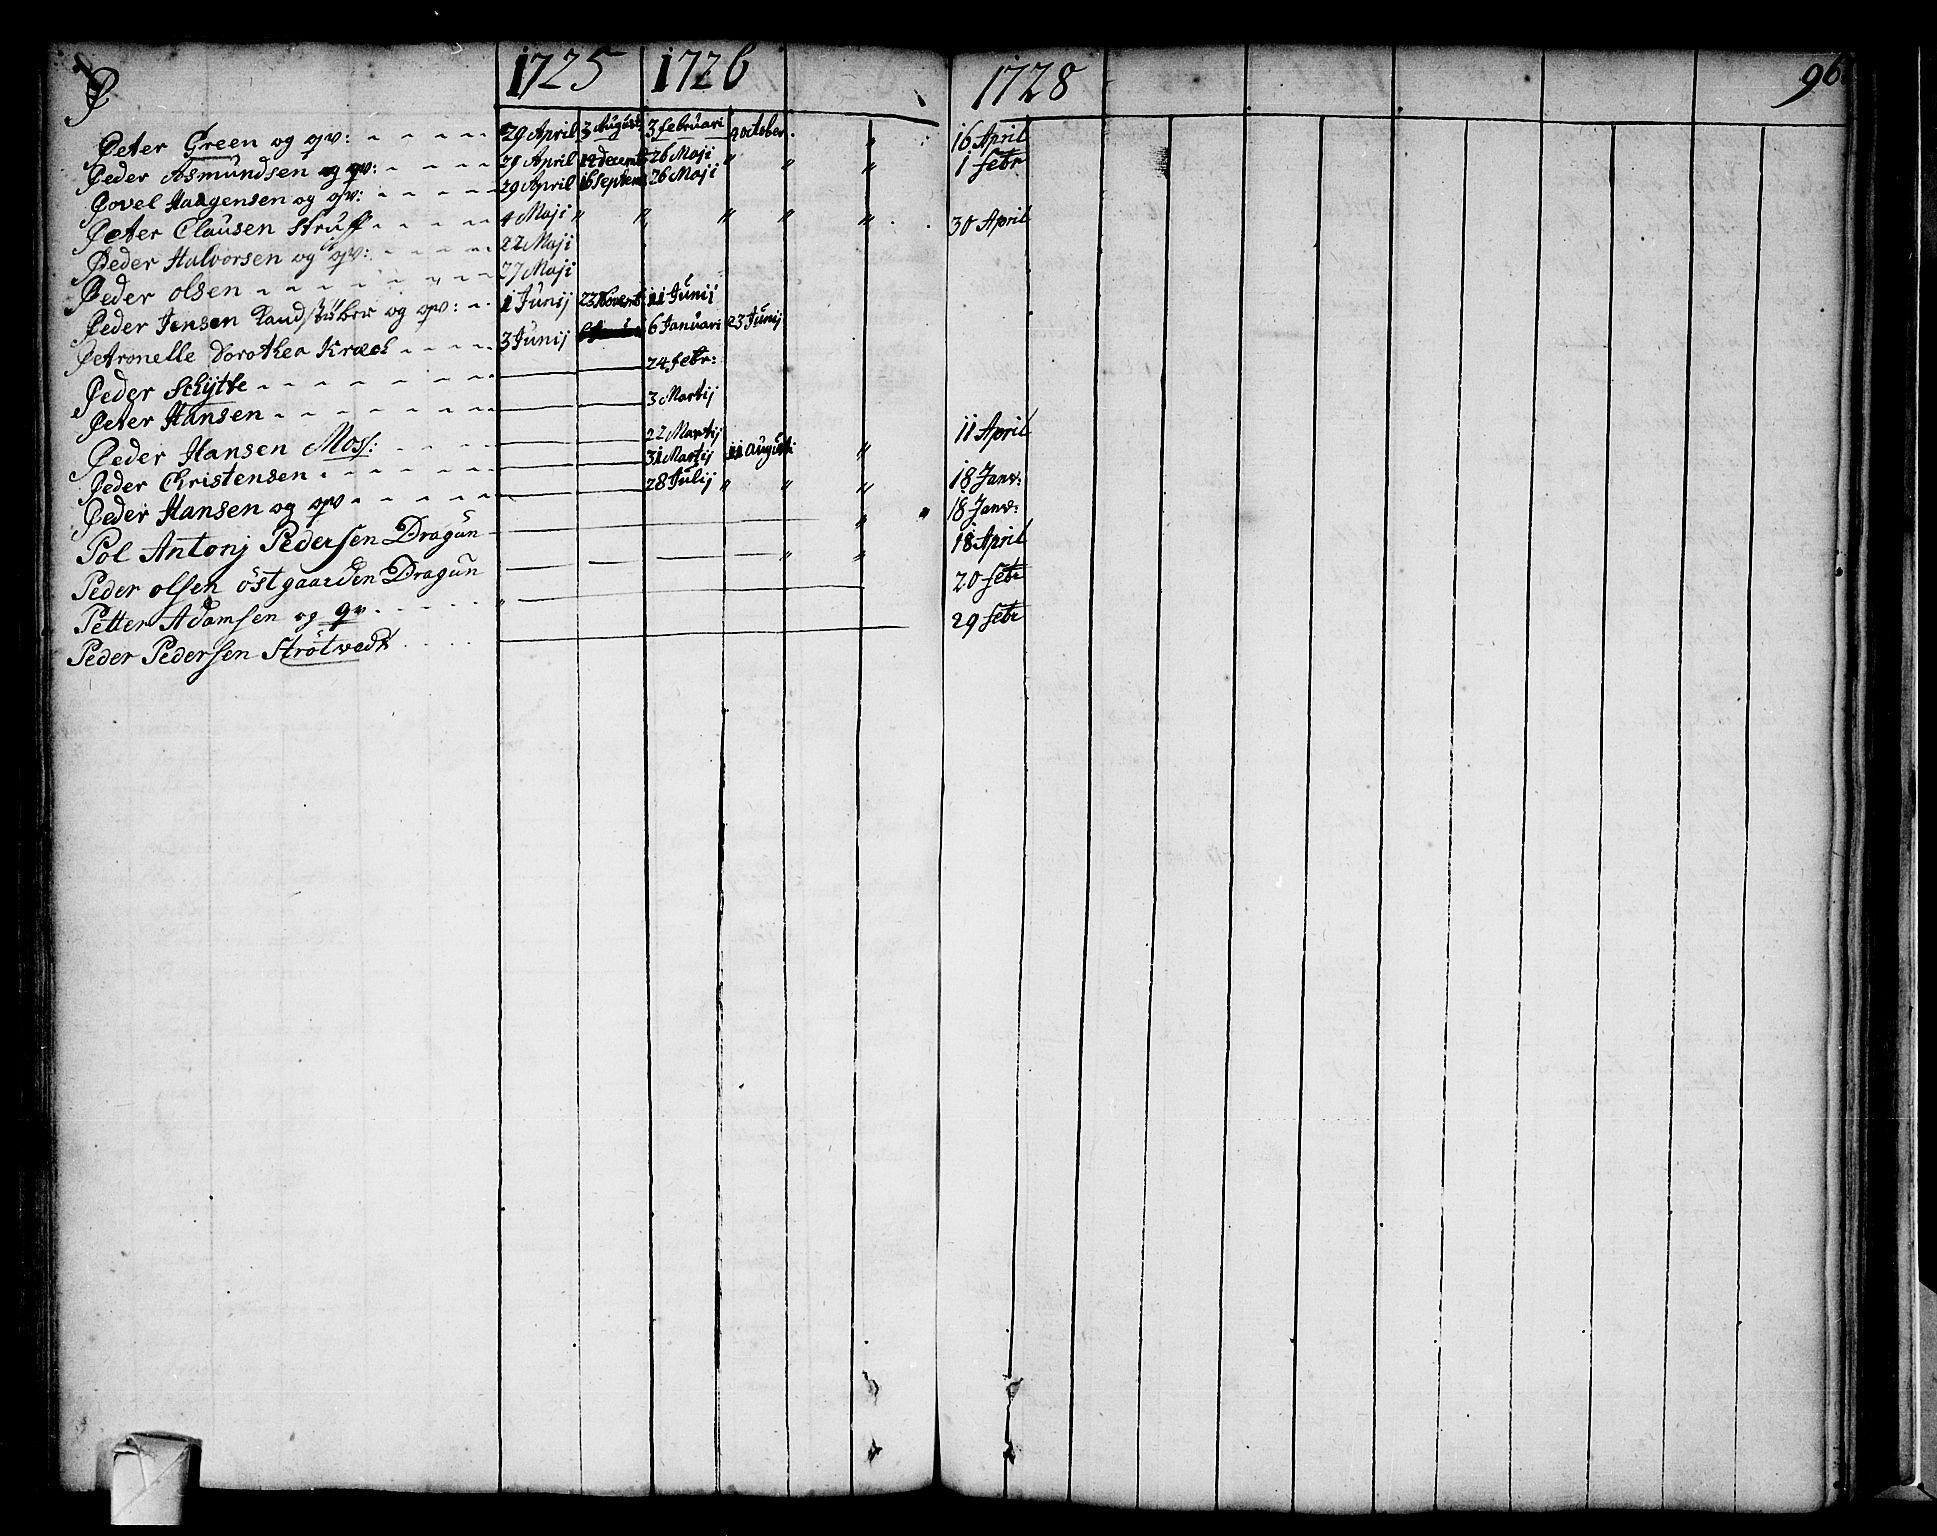 P 1725 1726 1728 96
Peter Green og qv: 29 April 3 August 3 februari 9 October " 16 April
Peder Asmundsen og qv: 29 April 19 decemb 26 Maji " " " 1 febr
Povel Haagensen og qv: 29 April 16 Septem 26 Maji
Peter Clausen Struff 4 Maji " " " " " 30 April
Peder Halvorsen og qv: 22 Maji
Peder olsen 27 Maji
Peder Jensen Randstüber og qv: 1 Junij 23 Novemb 11 Junij
Petronelle Dorothea Kræch 3 Junij 6 Januari 23 Junij
Peder Schytte 24 febr:
Peter Hansen 3 Martij
Peder Hansen Moss: 22 Martij 11 April
Peder Christensen 31 Martij 11 Augusti "
Peder Hansen og qv 28 Julij " " " 18 Janv:
Pol Antonj Pedersen Dragun " 18 Janv:
Peder olsen östgaarden Dragun " " 18 April
Petter Adamsen og qv 20 febr
Peder Pedersen Strötvedt 29 febr